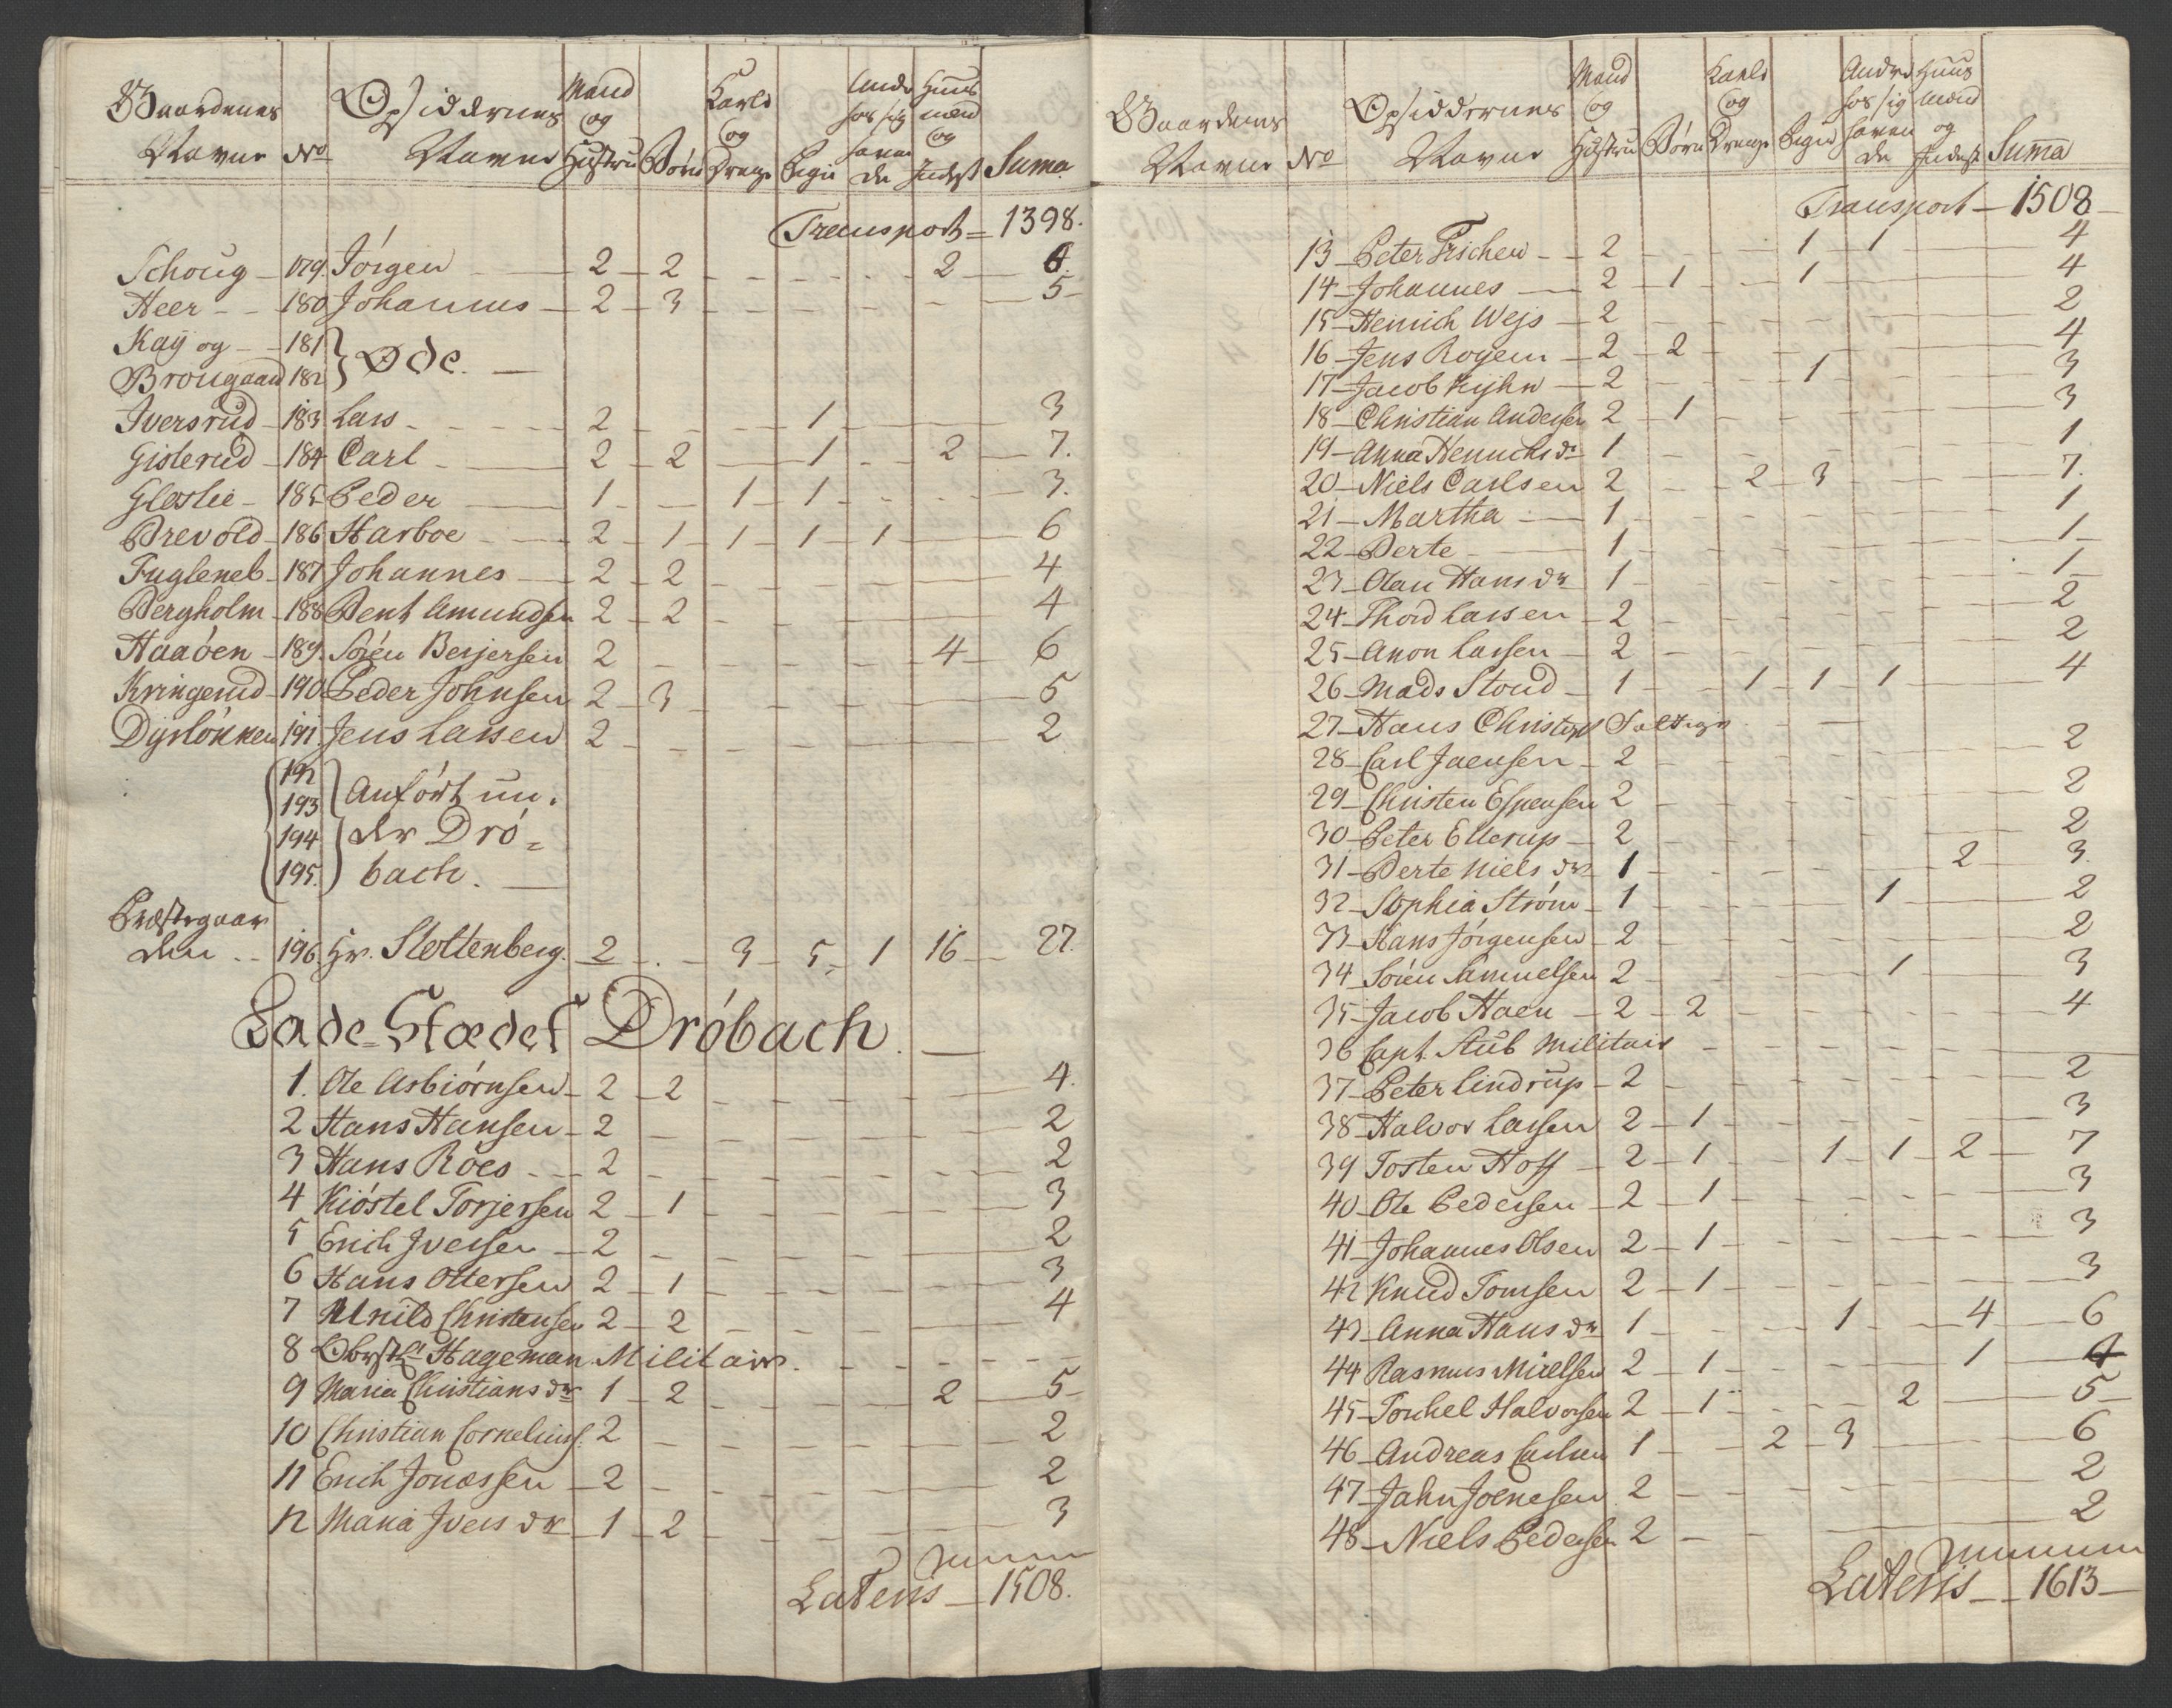 Gaardenes Navne No Opsiddernes Navne Mand og Hustru Børn Karle og Drenge Piger Andre hos sig havende Huusmænd og Inderst Suma
Transport = 1398.
Schoug 179. Jörgen 2 2 2 6.
Heer 180 Johannes 2 3 5
Kaÿ og 181
Brougaard 182 } Øde.
Iversrud 183 Lars 2 1 3
Gislerud 184 Carl 2 2 1 2 7.
Gloslie 185 Peder 1 1 1 3.
Brevold 186 Harboe 2 1 1 1 1 6
Fugleneb 187 Johannes 2 2 4
Bergholm 188 Bent Amundsen 2 2 4
Haaöen 189. Sören Berjersen 2 4 6
Kringerud 190 Peder Johnsen 2 3 5
Dyrlökken 191. Jens Larsen 2 2
192
193 Anfört un-
194 der Drö=
195. bach.
Præstegaar
den 196. Hr. Stoltenberg. 2 3 5 1 16 27.
Lade-Stædet Dröbach.
1. Ole Asbiörnsen 2 2 4.
2 Hans Hansen 2 2
3 Hans Röes 2 2
4 Kiöstel Torjersen 2 1 3
5 Erich Iversen 2 2
6 Hans Ottersen 2 1 3
7 Christensen 2 2 4
8 Obrstlt Hageman Militair.
9 Maria Christiansdr 1 2 2 5
10 Christian Cornelius. 2 2
11 Erich Jonassen 2 2
12 Maria Iversdr 1 2 3
Lateris 1508.
Gaardenes Navne No Opsiddernes Navne Mand og Hustru Børn Karle og Drenge Piger Andre hos sig havende Huusmænd og Inderst Suma
Transport 1508
13 Peter Frischen 2 1 1 4
14 Johannes 2 1 1 4
15 Henrich Wejs 2 2
16 Jens Royem 2 2 4
17 Jacob Kijhn 2 1 3
18 Christian Andersen 2 1 3
19 Anna Henrichsdr 1 1
20 Niels Carlsen 2 2 3 7.
21 Martha 1 1
22 Berte 1 1
23 Olau Hansdr 1 1
24 Thord Larsen 2 2
25 Anon Larsen 2 2
26 Mads Stoud 1 1 1 1 4
27 Hans Christoph
28 Carl Jaensen 2 2
29 Christen Espensen 2 2
30 Peter Ellerup 2 2
31 Berte Nielsdr 1 2 3.
32 Sophia Ström 1 1 2
33 Hans Jörgensen 2 2
34 Sören Samuelsen 2 1 3
35 Jacob Haen 2 2 4
36 Capt. Stub Militair
37 Peter Lindrup 2 2
38 Halvor Larsen 2 1 3
39 Tosten Hoff 2 1 1 1 2 7
40 Ole Pedersen 2 1 3
41 Johannes Olsen 2 1 3
42 Knud Tomsen 2 1 3
43 Anna Hansdr 1 1 4 6
44 Rasmus Mielsen 2 1 1 4
45 Torchel Halvorsen 2 1 2 5
46 Andreas Carlsen 1 2 3 6
47 Jahn Joenesen 2 2
48 Niels Pedersen 2 2
Lateris 1613